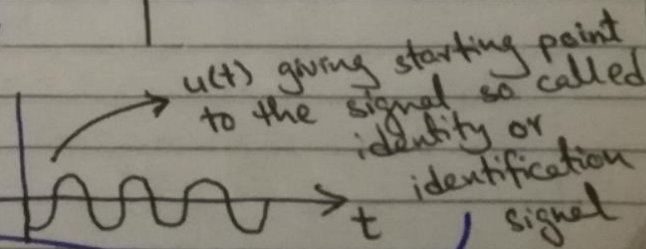 u(t) giving starting point
to the signal so called
identity or
identification
signal
t